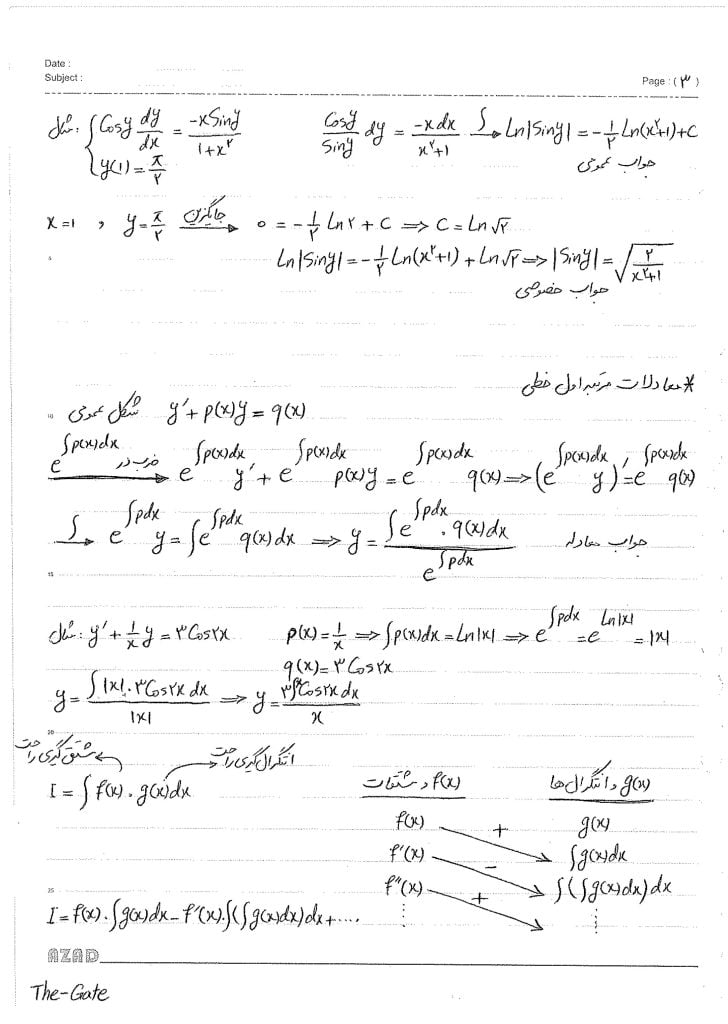 Date :
Subject :
Page : (۳)
مثال: { Cosy dy/dx = -xSiny / 1+x²     Cosy/Siny dy = -xdx / x²+1  ∫→  Ln|Siny| = -1/۲ Ln(x²+1)+C
y(1) = π/۲     جواب عمومی
x=1 , y=π/۲  جایگزین→  ۰ = -1/۲ Ln۲ + C ⇒ C = Ln√۲
Ln|Siny| = -1/۲ Ln(x²+1) + Ln√۲ ⇒ |Siny| = √(۲ / x²+1)
جواب خصوصی
* معادلات مرتبه اول خطی
10 شکل عمومی  y' + p(x)y = q(x)
e^∫p(x)dx ضرب در→  e^∫p(x)dx y' + e^∫p(x)dx p(x)y = e^∫p(x)dx q(x) ⇒ (e^∫p(x)dx y)' = e^∫p(x)dx q(x)
∫→  e^∫pdx y = ∫e^∫pdx q(x)dx ⇒ y = ∫e^∫pdx . q(x)dx / e^∫pdx     جواب معادله
15
مثال: y' + 1/x y = ۳Cos۲x     p(x) = 1/x ⇒ ∫p(x)dx = Ln|x| ⇒ e^∫pdx = e^Ln|x| = |x|
q(x) = ۳Cos۲x
y = ∫|x|.۳Cos۲x dx / |x| ⇒ y = ۳∫xCos۲x dx / x
20
مشتق گیری راحت     انتگرال گیری راحت
I = ∫f(x).g(x)dx     f(x) و مشتقات     g(x) و انتگرال ها
f(x)  +  g(x)
f'(x)  -  ∫g(x)dx
f''(x)  +  ∫(∫g(x)dx)dx
25
I = f(x).∫g(x)dx - f'(x).∫(∫g(x)dx)dx + ....
AZAD
The-Gate